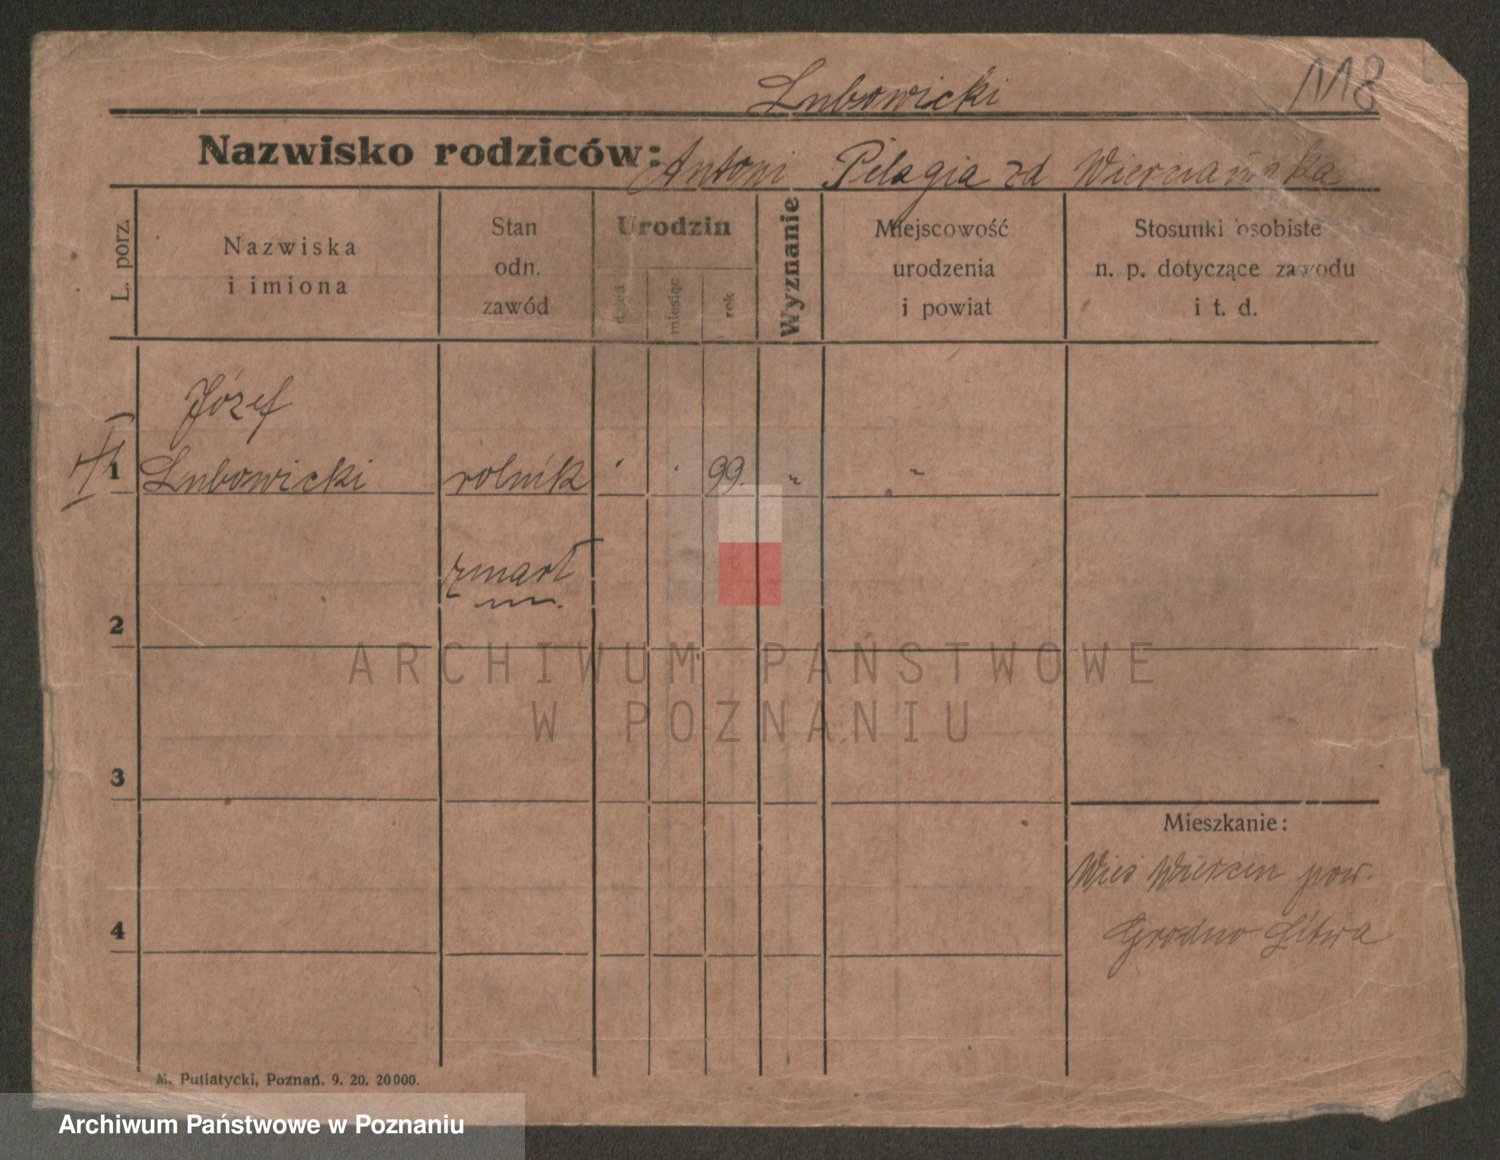 118
Lubowicki
Nazwisko rodziców: Antoni Pelagia zd Wierciańska
L. porz.
Nazwiska
i imiona
Stan
odn.
zawód
Urodzin
dzień
miesiąc
rok
Wyznanie
Miejscowość
urodzenia
i powiat
Stosunki osobiste
n. p. dotyczące zawodu
i t. d.
Józef
1 Lubowicki rolnik " " 99. " "
zmarł
2
3
Mieszkanie:
Wieś pow.
Grodno Litwa
4
M. Putiatycki, Poznań. 9. 20. 20000.
ARCHIWUM PAŃSTWOWE
W POZNANIU
Archiwum Państwowe w Poznaniu